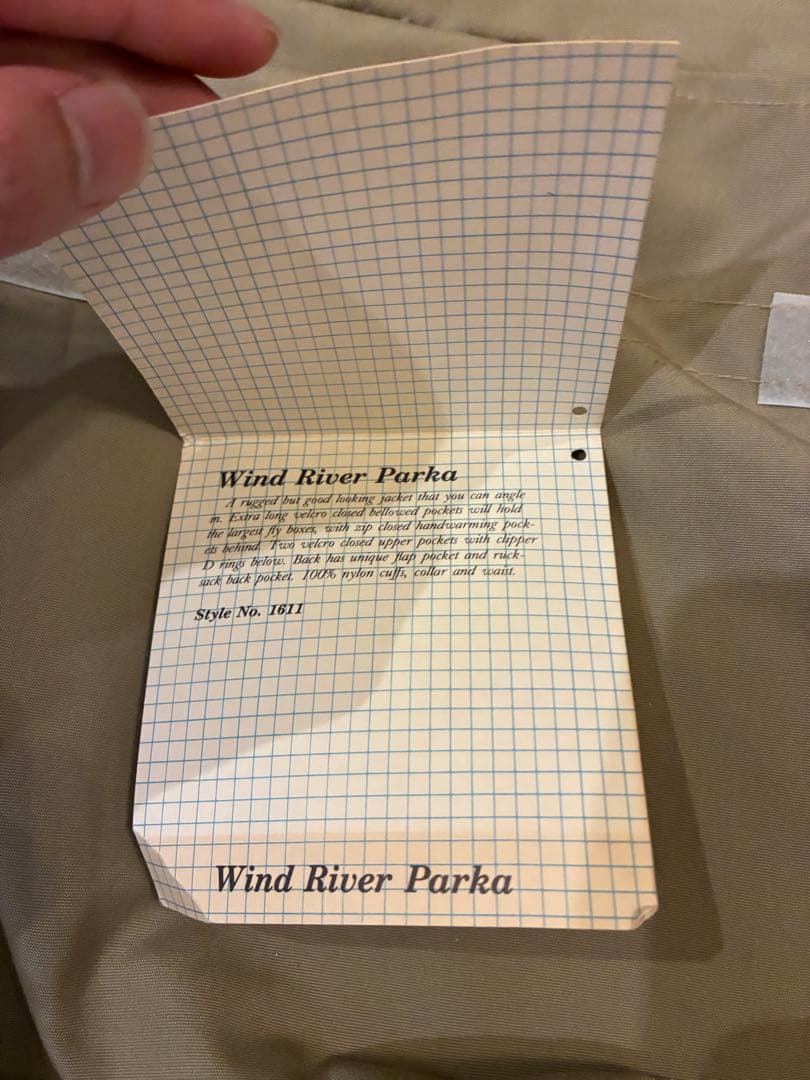 Wind River Parka
A rugged but good looking jacket that you can angle
in. Extra long velcro closed bellowed pockets will hold
the largest fly boxes, with zip closed handwarming pock-
ets behind. Two velcro closed upper pockets with clipper
D rings below. Back has unique flap pocket and ruck-
sack back pocket. 100% nylon cuffs, collar and waist.
Style No. 1611
Wind River Parka